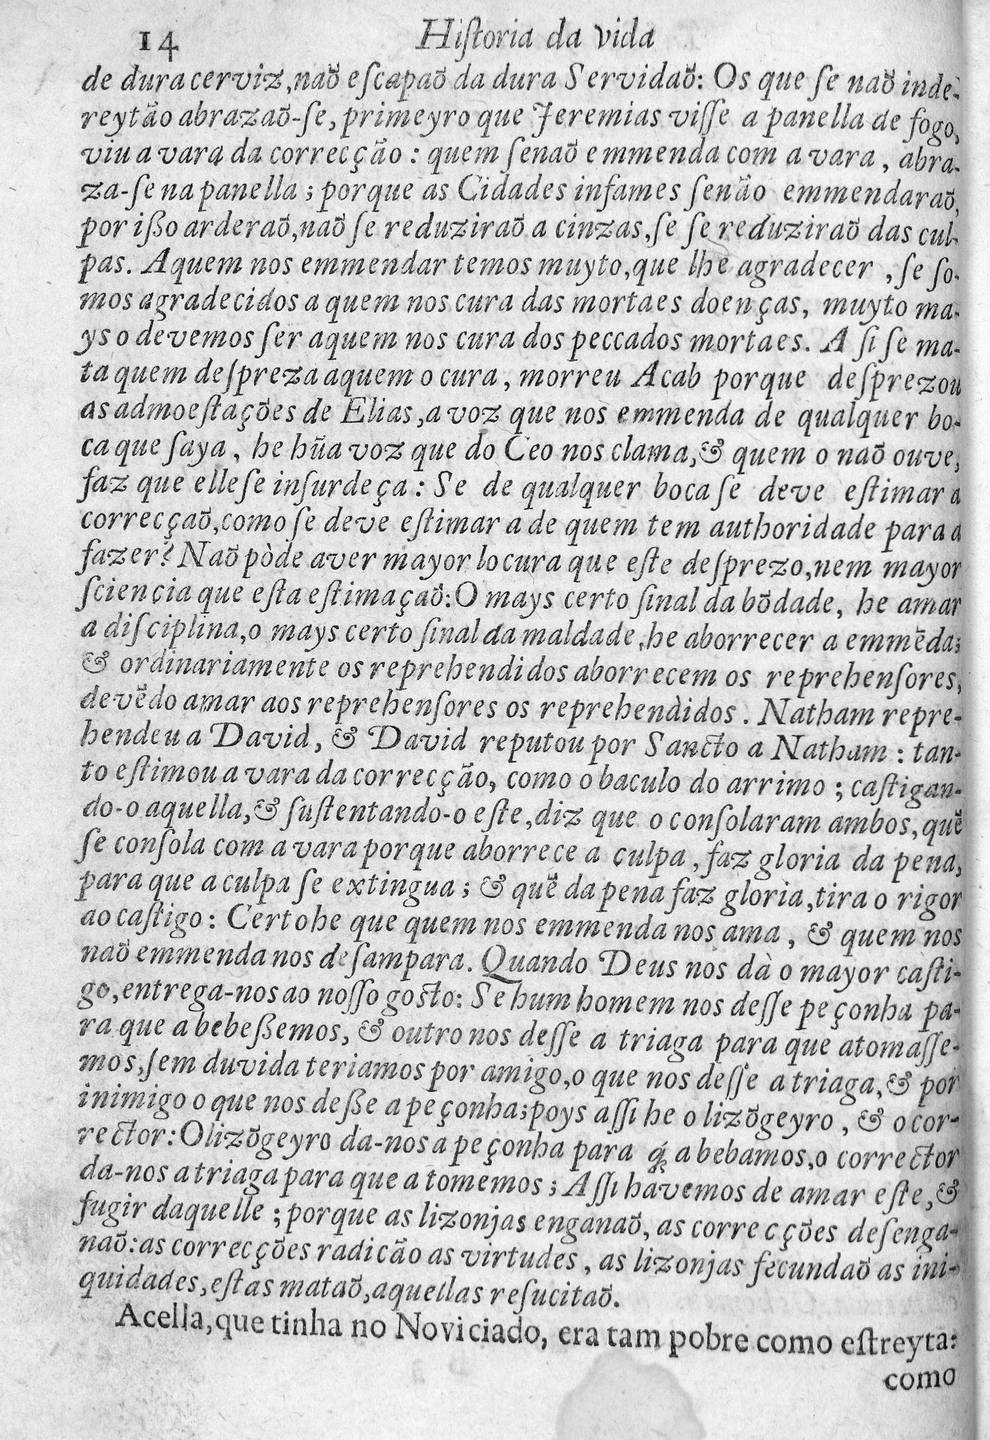 14 Hiſtoria da vida
de dura cerviz, naõ eſcapaõ da dura Servidaõ: Os que ſe naõ inde-
reytão abrazaõ-ſe, primeyro que Jeremias viſſe a panella de fogo,
viu a vara da correcção: quem ſenaõ emmenda com a vara, abra-
za-ſe na panella; porque as Cidades infames ſenão emmendaraõ,
por ißo arderaõ, naõ ſe reduziraõ a cinzas, ſe ſe reduziraõ das cul-
pas. Aquem nos emmendar temos muyto, que lhe agradecer, ſe ſo-
mos agradecidos a quem nos cura das mortaes doenças, muyto ma-
ys o devemos ſer aquem nos cura dos peccados mortaes. A ſi ſe ma-
ta quem deſpreza aquem o cura, morreu Acab porque deſprezou
as admoeſtações de Elias, a voz que nos emmenda de qualquer bo-
ca que ſaya, he hũa voz que do Ceo nos clama, & quem o naõ ouve,
faz que elle ſe inſurdeça: Se de qualquer boca ſe deve eſtimar a
correcçaõ, como ſe deve eſtimar a de quem tem authoridade para a
fazer? Naõ pòde aver mayor locura que eſte deſprezo, nem mayor
ſciencia que eſta eſtimaçaõ: O mays certo ſinal da bõdade, he amar
a diſciplina, o mays certo ſinal da maldade, he aborrecer a emmẽda;
& ordinariamente os reprehendidos aborrecem os reprehenſores,
devẽdo amar aos reprehenſores os reprehendidos. Natham repre-
hendeu a David, & David reputou por Sancto a Natham: tan-
to eſtimou a vara da correcção, como o baculo do arrimo; caſtigan-
do-o aquella, & ſuſtentando-o eſte, diz que o conſolaram ambos, quẽ
ſe conſola com a vara porque aborrece a culpa, faz gloria da pena,
para que a culpa ſe extingua; & quẽ da pena faz gloria, tira o rigor
ao caſtigo: Certo he que quem nos emmenda nos ama, & quem nos
naõ emmenda nos deſampara. Quando Deus nos dà o mayor caſti-
go, entrega-nos ao noſſo goſto: Se hum homem nos deſſe peçonha pa-
ra que a bebeßemos, & outro nos deſſe a triaga para que atomaſſe-
mos, ſem duvida teriamos por amigo, o que nos deſſe a triaga, & por
inimigo o que nos deße a peçonha; poys aſſi he o lizõgeyro, & o cor-
rector: O lizõgeyro da-nos a peçonha para q̃ a bebamos, o corrector
da-nos a triaga para que a tomemos; Aſſi havemos de amar eſte, &
fugir daquelle; porque as lizonjas enganaõ, as correcções deſenga-
naõ: as correcções radicão as virtudes, as lizonjas fecundaõ as ini-
quidades, eſtas mataõ, aquellas reſucitaõ.
Acella, que tinha no Noviciado, era tam pobre como eſtreyta:
como